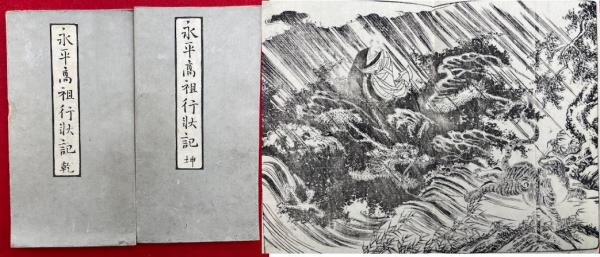 永平高祖行狀記 乾
永平高祖行狀記 坤